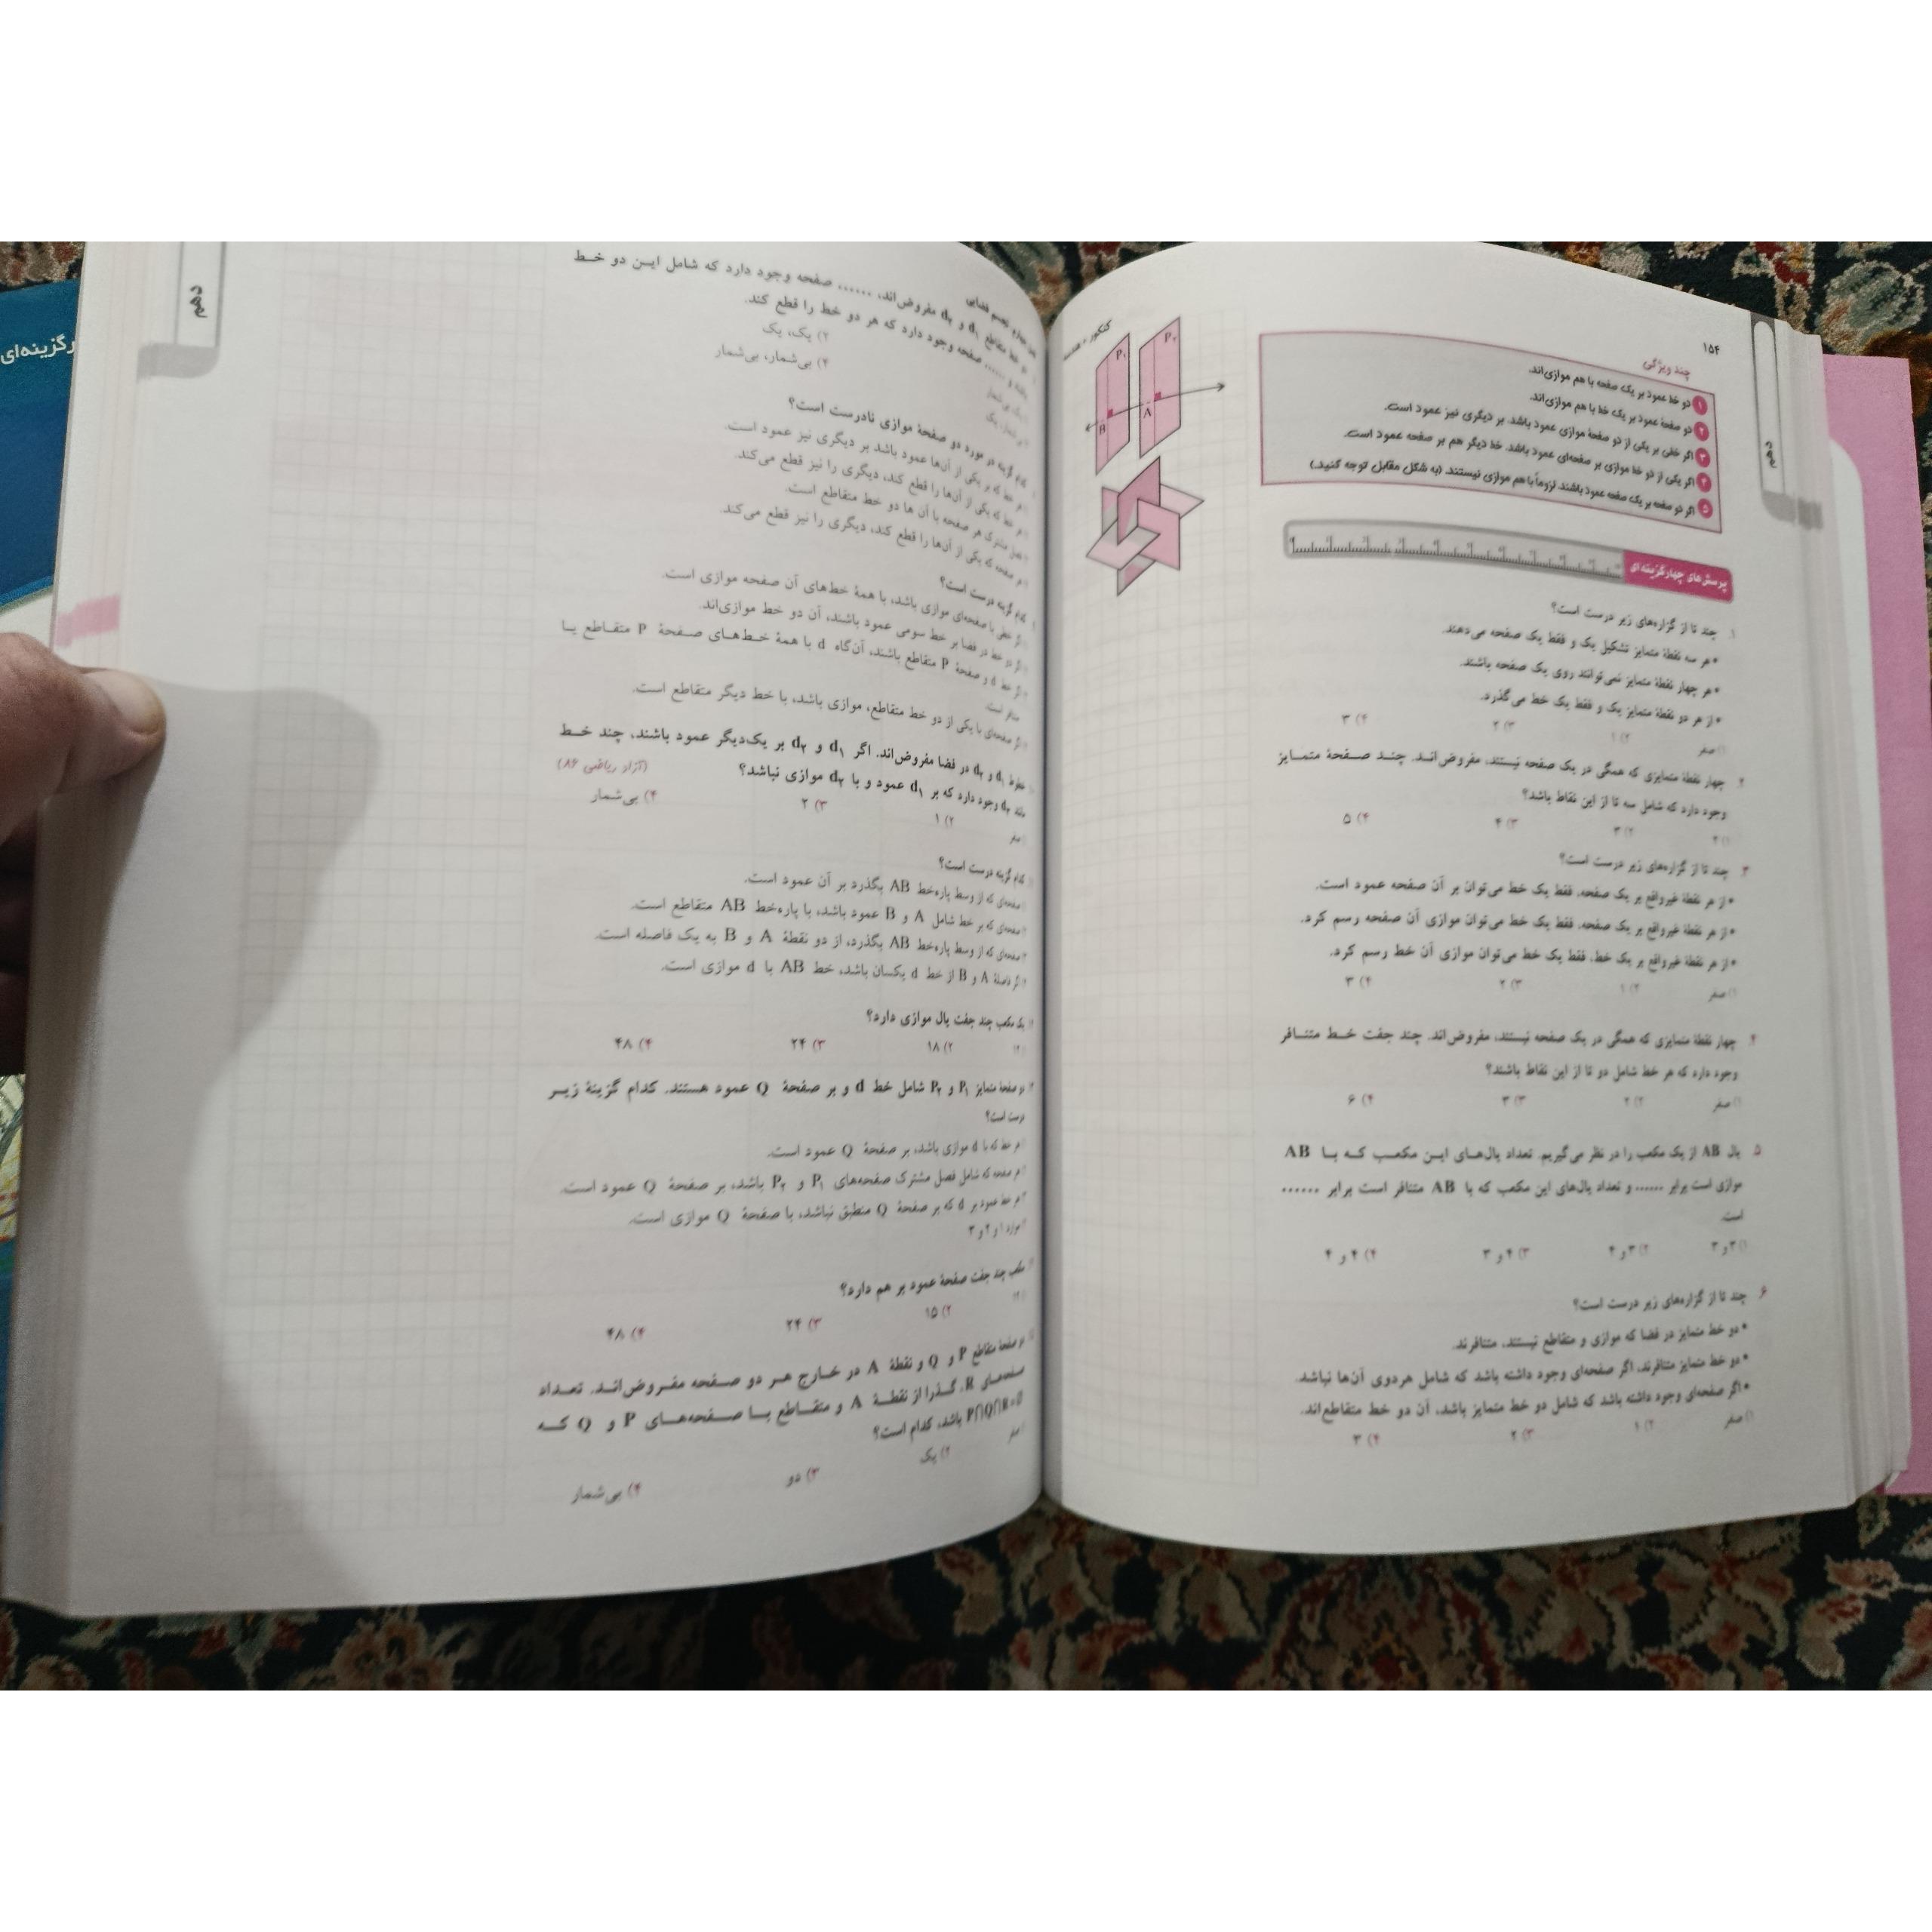 ۱۵۴
کنکور + هندسه
دهم
چند ویژگی
۱ دو خط عمود بر یک صفحه با هم موازی‌اند.
۲ دو صفحهٔ عمود بر یک خط با هم موازی‌اند.
۳ اگر خطی بر یکی از دو صفحهٔ موازی عمود باشد، بر دیگری نیز عمود است.
۴ اگر یکی از دو خط موازی بر صفحه‌ای عمود باشد، خط دیگر هم بر صفحه عمود است.
۵ اگر دو صفحه بر یک صفحه عمود باشند، لزوماً با هم موازی نیستند. (به شکل مقابل توجه کنید.)
P۱
P۲
B
A
پرسش‌های چهارگزینه‌ای
۱. چند تا از گزاره‌های زیر درست است؟
• هر سه نقطهٔ متمایز تشکیل یک و فقط یک صفحه می‌دهند.
• هر چهار نقطهٔ متمایز نمی‌توانند روی یک صفحه باشند.
• از هر دو نقطهٔ متمایز یک و فقط یک خط می‌گذرد.
۱) صفر ۲) ۱ ۳) ۲ ۴) ۳
۲. چهار نقطهٔ متمایزی که همگی در یک صفحه نیستند، مفروض‌اند. چند صفحهٔ متمایز
وجود دارد که شامل سه تا از این نقاط باشد؟
۲) ۳ ۳) ۴ ۴) ۵
۳. چند تا از گزاره‌های زیر درست است؟
• از هر نقطهٔ غیرواقع بر یک صفحه، فقط یک خط می‌توان بر آن صفحه عمود است.
• از هر نقطهٔ غیرواقع بر یک صفحه، فقط یک خط می‌توان موازی آن صفحه رسم کرد.
• از هر نقطهٔ غیرواقع بر یک خط، فقط یک خط می‌توان موازی آن خط رسم کرد.
۱) صفر ۲) ۱ ۳) ۲ ۴) ۳
۴. چهار نقطهٔ متمایزی که همگی در یک صفحه نیستند، مفروض‌اند. چند جفت خط متنافر
وجود دارد که هر خط شامل دو تا از این نقاط باشند؟
۱) صفر ۲) ۲ ۳) ۳ ۴) ۶
۵. یال AB از یک مکعب را در نظر می‌گیریم. تعداد یال‌های این مکعب که با AB
موازی است برابر ...... و تعداد یال‌های این مکعب که با AB متنافر است برابر ......
است.
۱) ۳ و ۳ ۲) ۳ و ۴ ۳) ۴ و ۳ ۴) ۴ و ۴
۶. چند تا از گزاره‌های زیر درست است؟
• دو خط متمایز در فضا که موازی و متقاطع نیستند، متنافرند.
• دو خط متمایز متنافرند، اگر صفحه‌ای وجود داشته باشد که شامل هردوی آن‌ها نباشد.
• اگر صفحه‌ای وجود داشته باشد که شامل دو خط متمایز باشد، آن دو خط متقاطع‌اند.
۱) صفر ۲) ۱ ۳) ۲ ۴) ۳
دهم
تجسم فضایی
خط متقاطع d۱ و d۲ مفروض‌اند، ...... صفحه وجود دارد که شامل این دو خط
باشد و ...... صفحه وجود دارد که هر دو خط را قطع کند.
۲) یک، یک
۴) بی‌شمار، بی‌شمار
کدام گزینه در مورد دو صفحهٔ موازی نادرست است؟
هر خط که بر یکی از آن‌ها عمود باشد بر دیگری نیز عمود است.
هر خط که یکی از آن‌ها را قطع کند، دیگری را نیز قطع می‌کند.
فصل مشترک هر صفحه با آن ها دو خط متقاطع است.
هر صفحه که یکی از آن‌ها را قطع کند، دیگری را نیز قطع می‌کند.
کدام گزینه درست است؟
اگر خطی با صفحه‌ای موازی باشد، با همهٔ خط‌های آن صفحه موازی است.
اگر دو خط در فضا بر خط سومی عمود باشند، آن دو خط موازی‌اند.
اگر خط d و صفحهٔ P متقاطع باشند، آن‌گاه d با همهٔ خط‌های صفحهٔ P متقاطع یا
متنافر است.
اگر صفحه‌ای با یکی از دو خط متقاطع، موازی باشد، با خط دیگر متقاطع است.
خطوط d۱ و d۲ در فضا مفروض‌اند. اگر d۱ و d۲ بر یک‌دیگر عمود باشند، چند خط
مانند d۳ وجود دارد که بر d۱ عمود و با d۲ موازی نباشد؟ (آزاد ریاضی ۸۶)
صفر ۲) ۱ ۳) ۲ ۴) بی‌شمار
کدام گزینه درست است؟
صفحه‌ای که از وسط پاره‌خط AB بگذرد بر آن عمود است.
صفحه‌ای که بر خط شامل A و B عمود باشد، با پاره‌خط AB متقاطع است.
صفحه‌ای که از وسط پاره‌خط AB بگذرد، از دو نقطهٔ A و B به یک فاصله است.
اگر فاصلهٔ A و B از خط d یکسان باشد، خط AB با d موازی است.
یک مکعب چند جفت یال موازی دارد؟
۲) ۱۸ ۳) ۲۴ ۴) ۴۸
دو صفحهٔ متمایز P۱ و P۲ شامل خط d و بر صفحهٔ Q عمود هستند. کدام گزینهٔ زیر
درست است؟
هر خط که با d موازی باشد، بر صفحهٔ Q عمود است.
هر صفحه که شامل فصل مشترک صفحه‌های P۱ و P۲ باشد، بر صفحهٔ Q عمود است.
هر خط عمود بر d که بر صفحهٔ Q منطبق نباشد، با صفحهٔ Q موازی است.
موارد ۱ و ۲ و ۳
مکعب چند جفت صفحهٔ عمود بر هم دارد؟
۲) ۱۵ ۳) ۲۴ ۴) ۴۸
دو صفحهٔ متقاطع P و Q و نقطهٔ A در خارج هر دو صفحه مفروض‌اند. تعداد
صفحه‌های R، گذرا از نقطهٔ A و متقاطع با صفحه‌های P و Q که
P∩Q∩R=∅ باشد، کدام است؟
صفر ۲) یک ۳) دو ۴) بی‌شمار
رگزینه‌ای